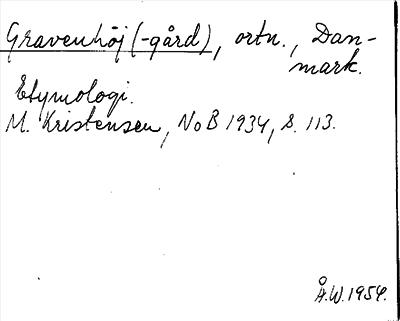 Gravenhöj (-gård), ortn., Dan-
mark.
Etymologi.
M. Kristensen, NoB 1934, s. 113.
Å.W. 1954.